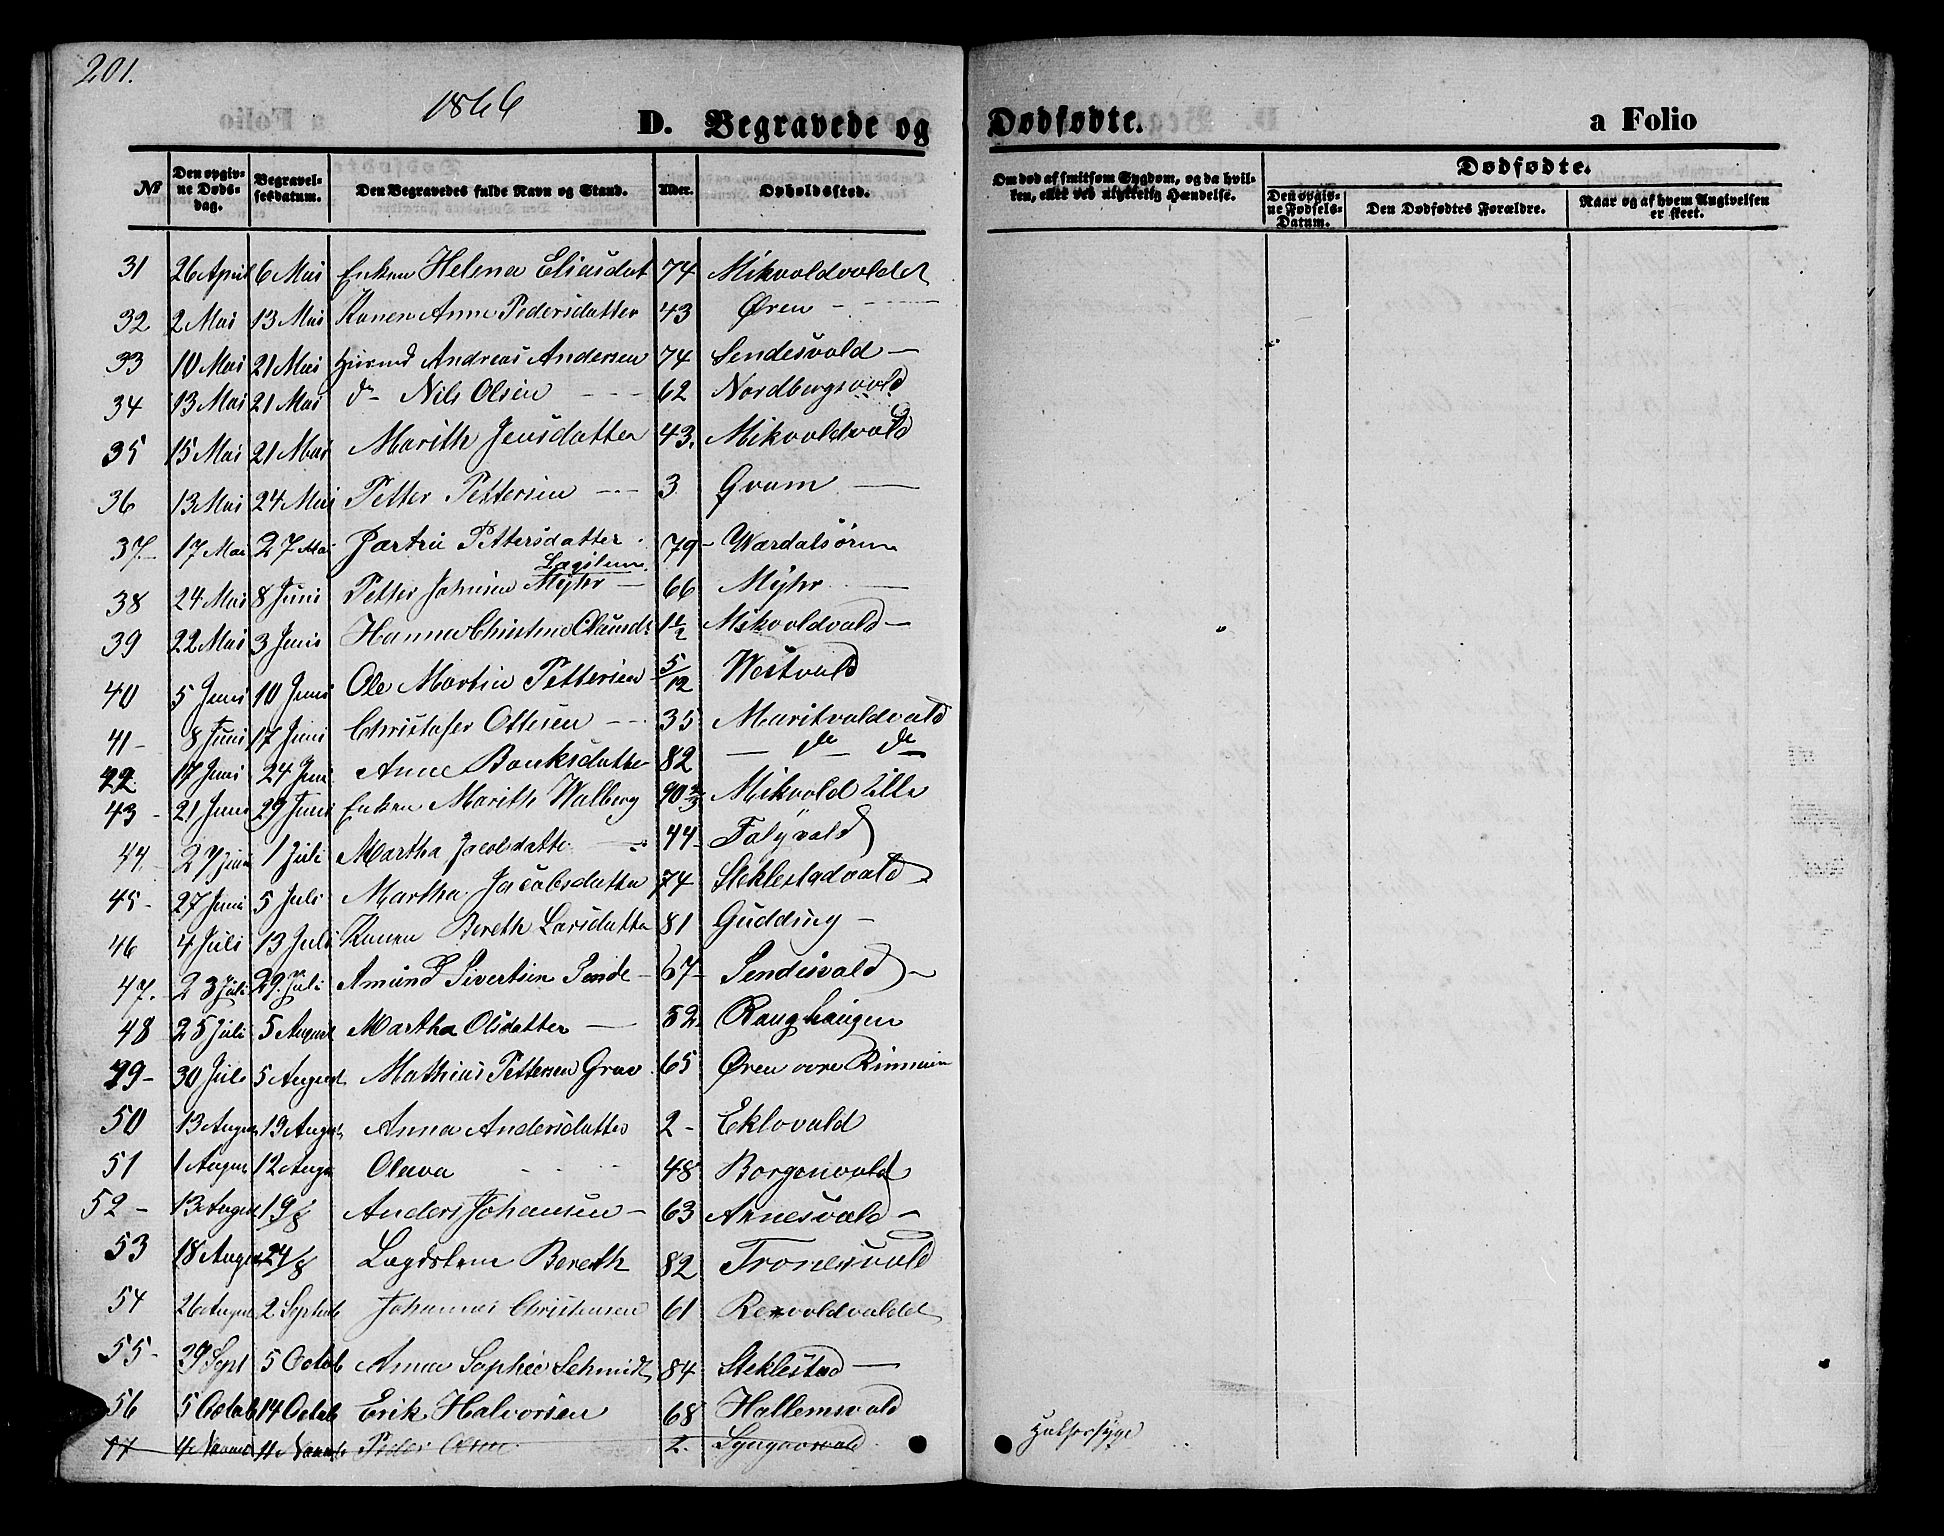 201.
1866
D. Begravede og Dødfødte. a Folio
Dødfødte.
No Den opgivne Døds-dag. Begravelsesdatum. Den Begravedes fulde Navn og Stand. Alder. Opholdssted. Om død af smitsom Sygdom, og da hvilken, eller ved ulykkelig Hændelse. Den opgivne Fødsels-Datum. Den Dødfødtes Forældre. Naar og af hvem Angivelsen er skeet.
31 26 April 6 Mai Enken Helena Eliasdat 74 Mikvoldvaldet
32 2 Mai 13 Mai Konen Anne Pedersdatter 43 Øren
33 10 Mai 21 Mai Huusmd Andreas Andersen 74 Sendesvald
34 13 Mai 21 Mai do Nils Olsen 62 Nordbergsvald
35 15 Mai 21 Mai Marith Jensdatter 43. Mikvoldvald
36 13 Mai 24 Mai Petter Pettersen 3 Qvam
37 17 Mai 27 Mai Pettersdatter 79 Wærdalsøren
38 24 Mai 8 Juni Petter Johnsen Myhr Lægslem 66 Myhr
39 22 Mai 3 Juni Hanna Christine Clausdr 1 1/2 Mikvoldvald
40 5 Juni 10 Juni Ole Martin Pettersen 5/12 Westvald
41 8 Juni 17 Juni Christofer Ottesen 35 Maritvoldvald
42 17 Juni 24 Juni Anne Banksdatter 82 do do
43 21 Juni 29 Juni Enken Marith Walberg 90 2/3 Mikvold lille
44 27 Juni 1 Juli Martha Jacobsdatter 44 Falyvald
45 27 Juni 5 Juli Martha Jacobsdatter 74 Steklestadvald
46 4 Juli 13 Juli Konen Bereth Larsdatter 81 Gudding
47. 23 Juli 29 Juli Amund Sivertsen 67 Sendesvald
48 25 Juli 5 August Martha Olsdatter 52 Ranghaugen
49 30 Juli 5 August Mathias Pettersen Grav 65 Øren øvre
50 13 August 19 August Anna Andersdatter 2 Eklovald
51 1 August 12 August Olava 48 Borgenvald
52 13 August 19/8 Anders Johansen 63 Arnesvald
53 18 August 24/8 Lægdslem Bereth 82 Tronesvald
54 26 August 2 Septemb Johannes Christensen 61 Reevoldvaldet
55 29 Sept 5 Octob Anna Sophie Schmidt 84 Steklestad
56 5 Octob 14 Octob Erik Halvorsen 68 Hallemsvald
Peder Olsen 2. Halssyge